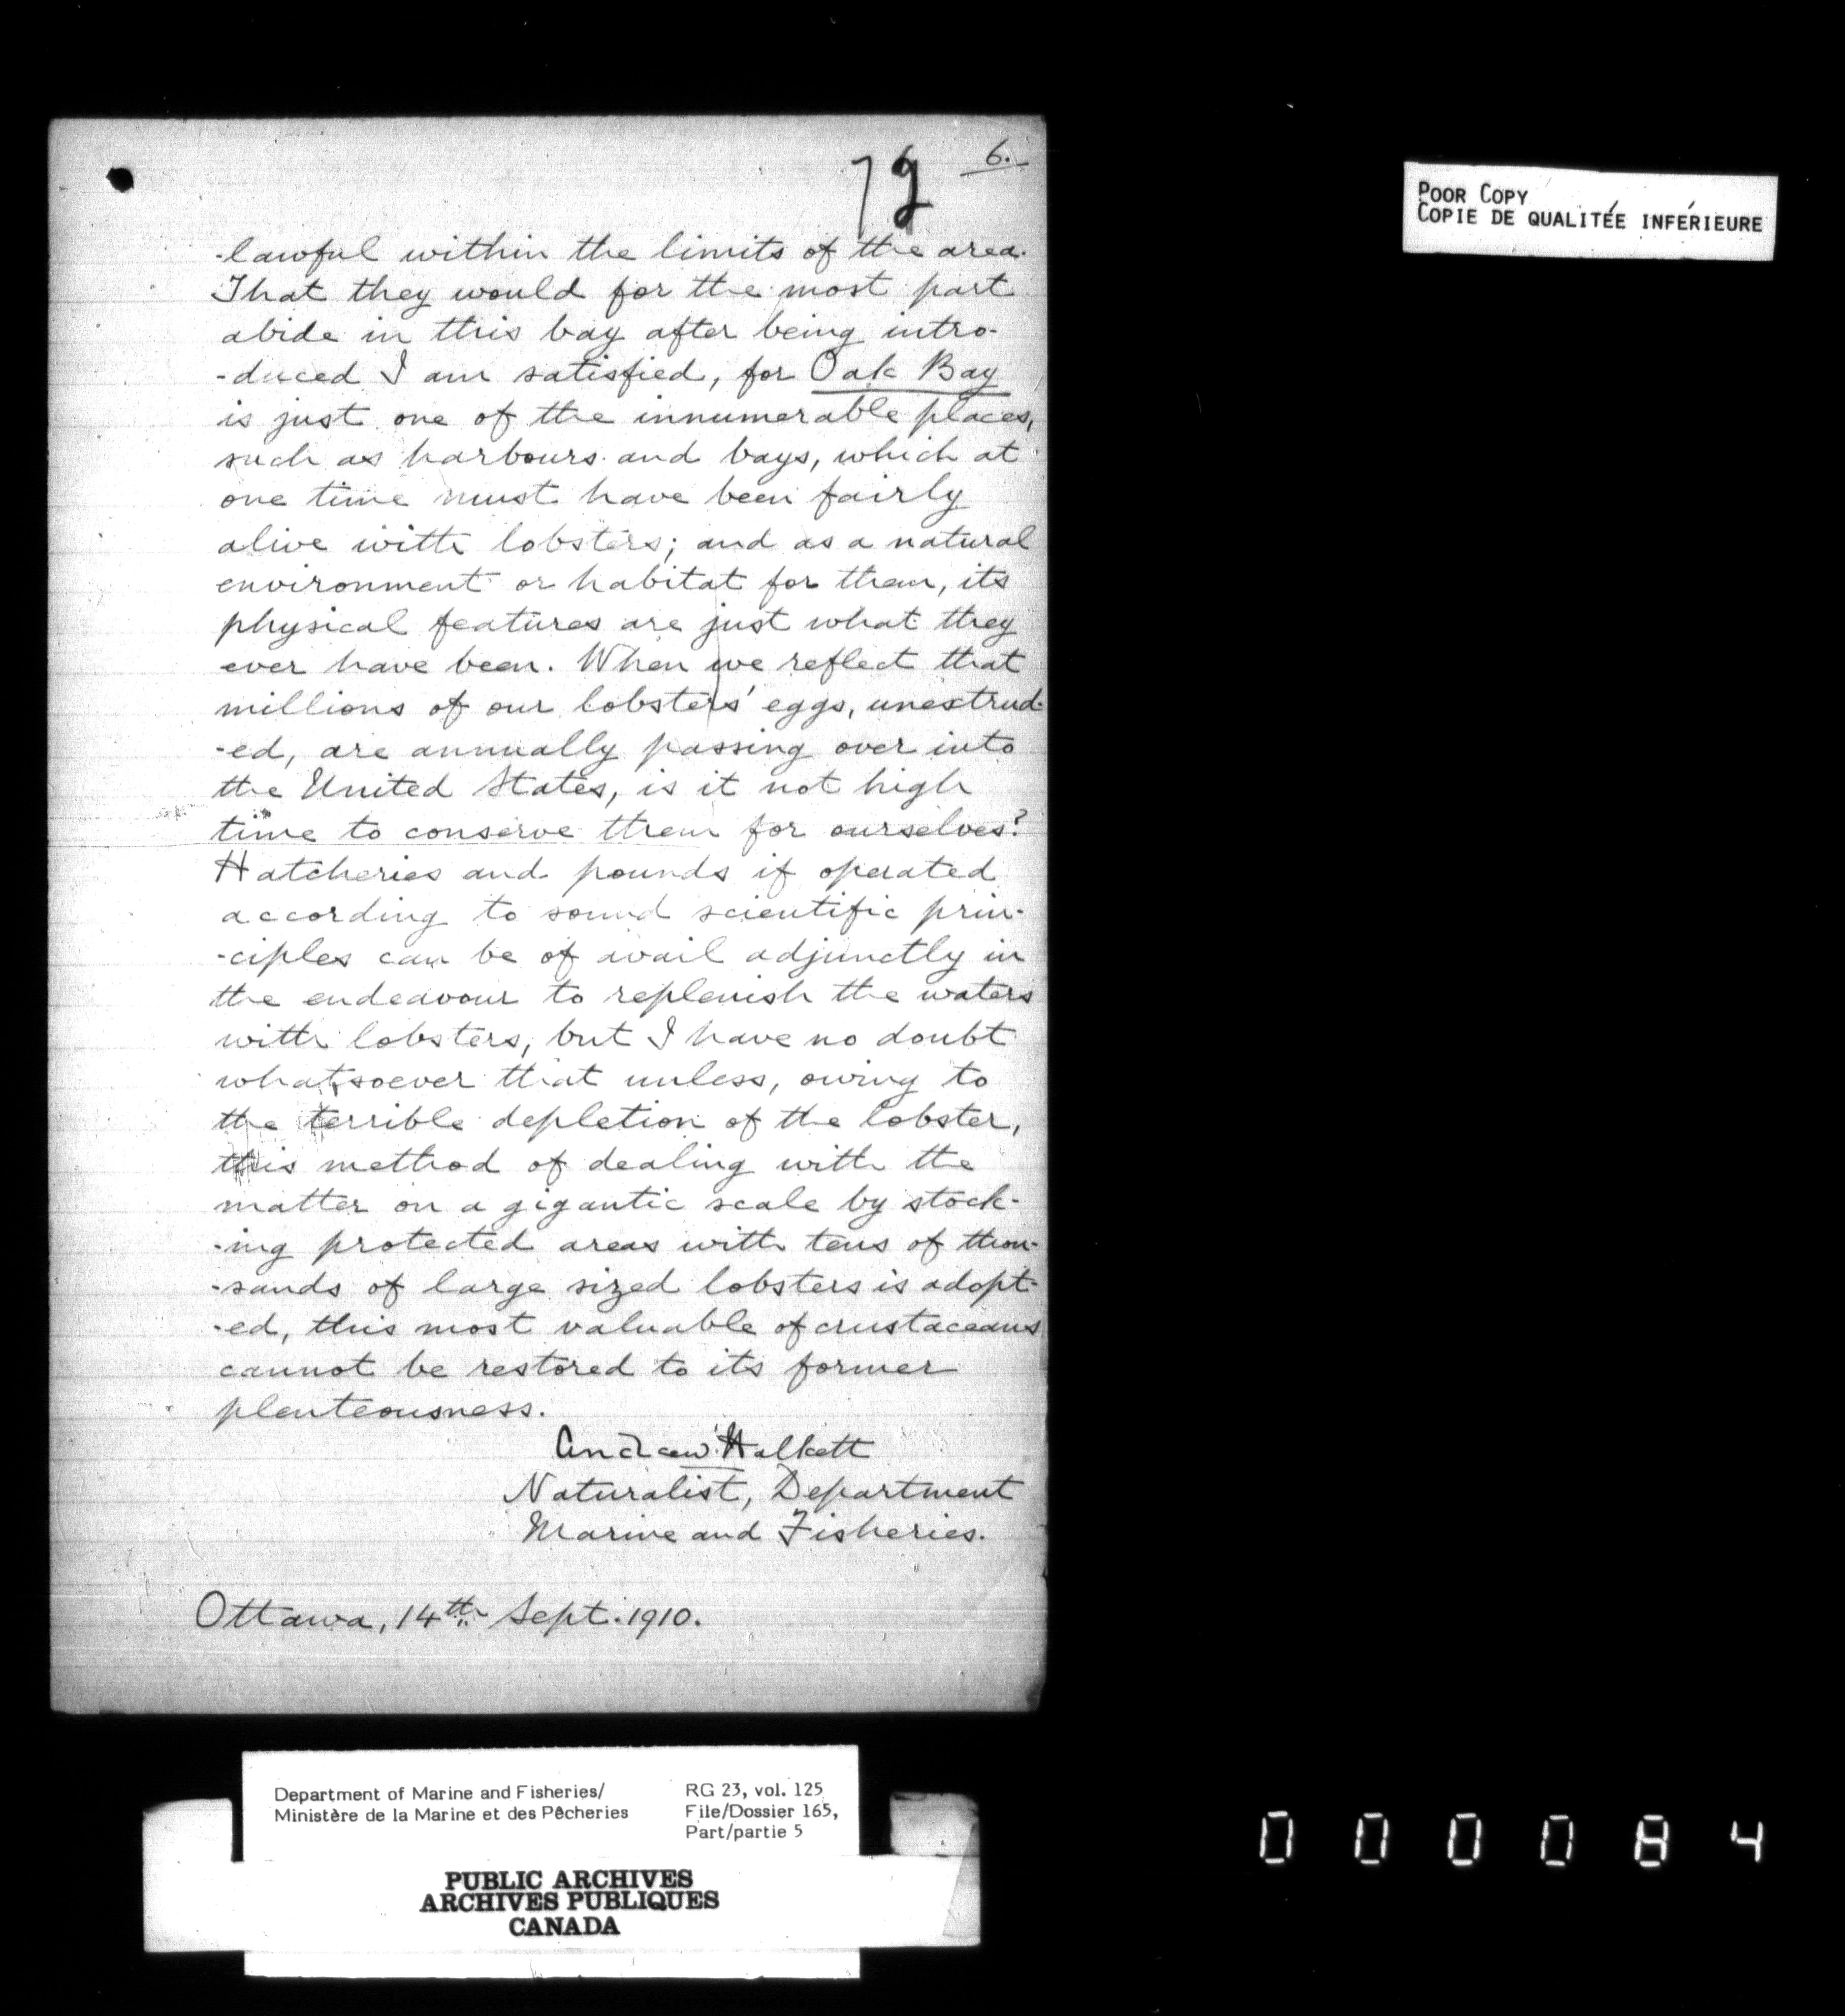 6.
72
-lawful within the limits of the area.
That they would for the most part
abide in this bay after being intro-
-duced I am satisfied, for Oak Bay
is just one of the innumerable places,
such as harbours and bays, which at
one time must have been fairly
alive with lobsters; and as a natural
environment or habitat for them, its
physical features are just what they
ever have been. When we reflect that
millions of our lobsters' eggs, unextrud-
-ed, are annually passing over into
the United States, is it not high
time to conserve them for ourselves?
Hatcheries and pounds if operated
according to sound scientific prin-
-ciples can be of avail adjunctly in
the endeavour to replenish the waters
with lobsters, but I have no doubt
whatsoever that unless, owing to
the terrible depletion of the lobster,
this method of dealing with the
matter on a gigantic scale by stock-
-ing protected areas with tens of thou-
-sands of large sized lobsters is adopt-
-ed, this most valuable of crustaceans
cannot be restored to its former
plenteousness.
Andrew Halkett
Naturalist, Department
Marine and Fisheries.
Ottawa, 14th Sept. 1910.
POOR COPY
COPIE DE QUALITÉE INFÉRIEURE
Department of Marine and Fisheries/
Ministère de la Marine et des Pêcheries
RG 23, vol. 125
File/Dossier 165,
Part/partie 5
PUBLIC ARCHIVES
ARCHIVES PUBLIQUES
CANADA
000084